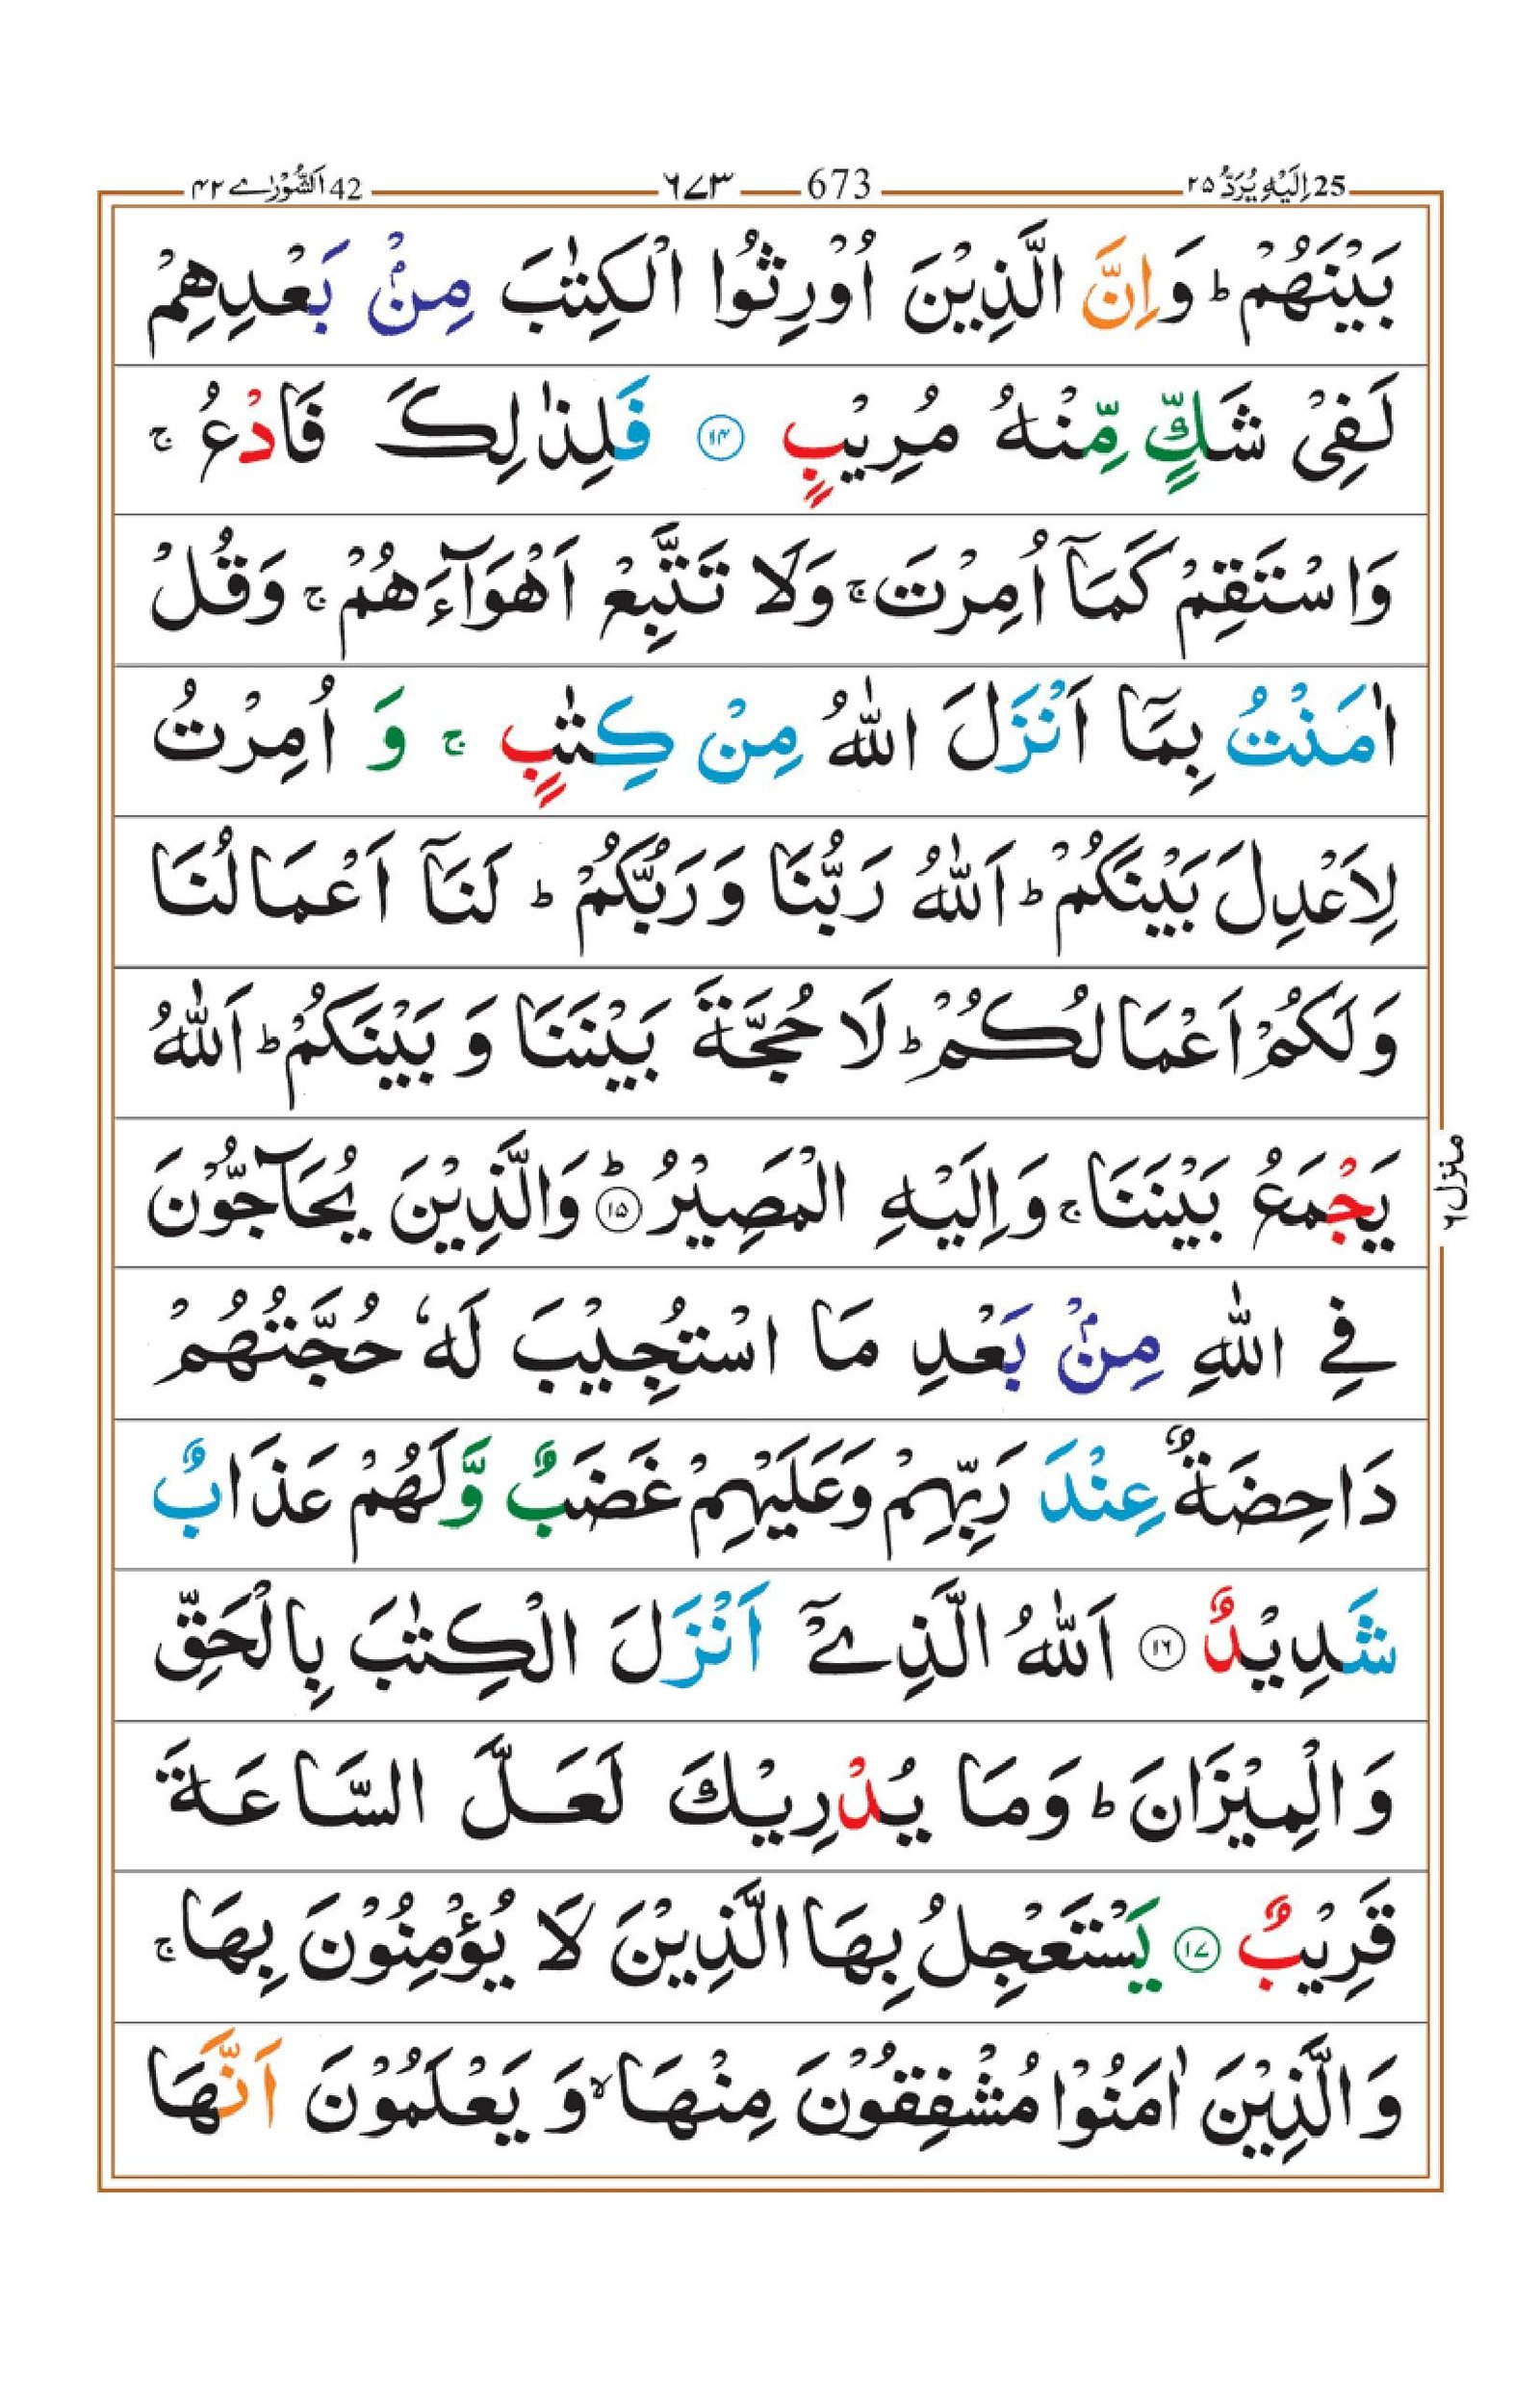 اَلشُّوْرٰى ٤٢ 42 ٦٧٣ 673 اِلَيْهِ يُرَدُّ ٢٥ 25
بَيْنَهُمْ ؕ وَاِنَّ الَّذِيْنَ اُوْرِثُوا الْكِتٰبَ مِنْۢ بَعْدِهِمْ
لَفِىْ شَكٍّ مِّنْهُ مُرِيْبٍ ﴿۱۴﴾ فَلِذٰلِكَ فَادْعُ ۚ
وَاسْتَقِمْ كَمَاۤ اُمِرْتَ ۚ وَلَا تَتَّبِعْ اَهْوَآءَهُمْ ۚ وَقُلْ
اٰمَنْتُ بِمَاۤ اَنْزَلَ اللّٰهُ مِنْ كِتٰبٍ ۚ وَ اُمِرْتُ
لِاَعْدِلَ بَيْنَكُمْ ؕ اَللّٰهُ رَبُّنَا وَ رَبُّكُمْ ؕ لَنَاۤ اَعْمَالُنَا
وَ لَكُمْ اَعْمَالُكُمْ ؕ لَا حُجَّةَ بَيْنَنَا وَ بَيْنَكُمْ ؕ اَللّٰهُ
يَجْمَعُ بَيْنَنَا ۚ وَ اِلَيْهِ الْمَصِيْرُ ؕ﴿۱۵﴾ وَالَّذِيْنَ يُحَآجُّوْنَ
فِى اللّٰهِ مِنْۢ بَعْدِ مَا اسْتُجِيْبَ لَهٗ حُجَّتُهُمْ
دَاحِضَةٌ عِنْدَ رَبِّهِمْ وَعَلَيْهِمْ غَضَبٌ وَّلَهُمْ عَذَابٌ
شَدِيْدٌ ﴿۱۶﴾ اَللّٰهُ الَّذِىْۤ اَنْزَلَ الْكِتٰبَ بِالْحَقِّ
وَالْمِيْزَانَ ؕ وَمَا يُدْرِيْكَ لَعَلَّ السَّاعَةَ
قَرِيْبٌ ﴿۱۷﴾ يَسْتَعْجِلُ بِهَا الَّذِيْنَ لَا يُؤْمِنُوْنَ بِهَا ۚ
وَالَّذِيْنَ اٰمَنُوْا مُشْفِقُوْنَ مِنْهَا ۙ وَ يَعْلَمُوْنَ اَنَّهَا
منزل ٦